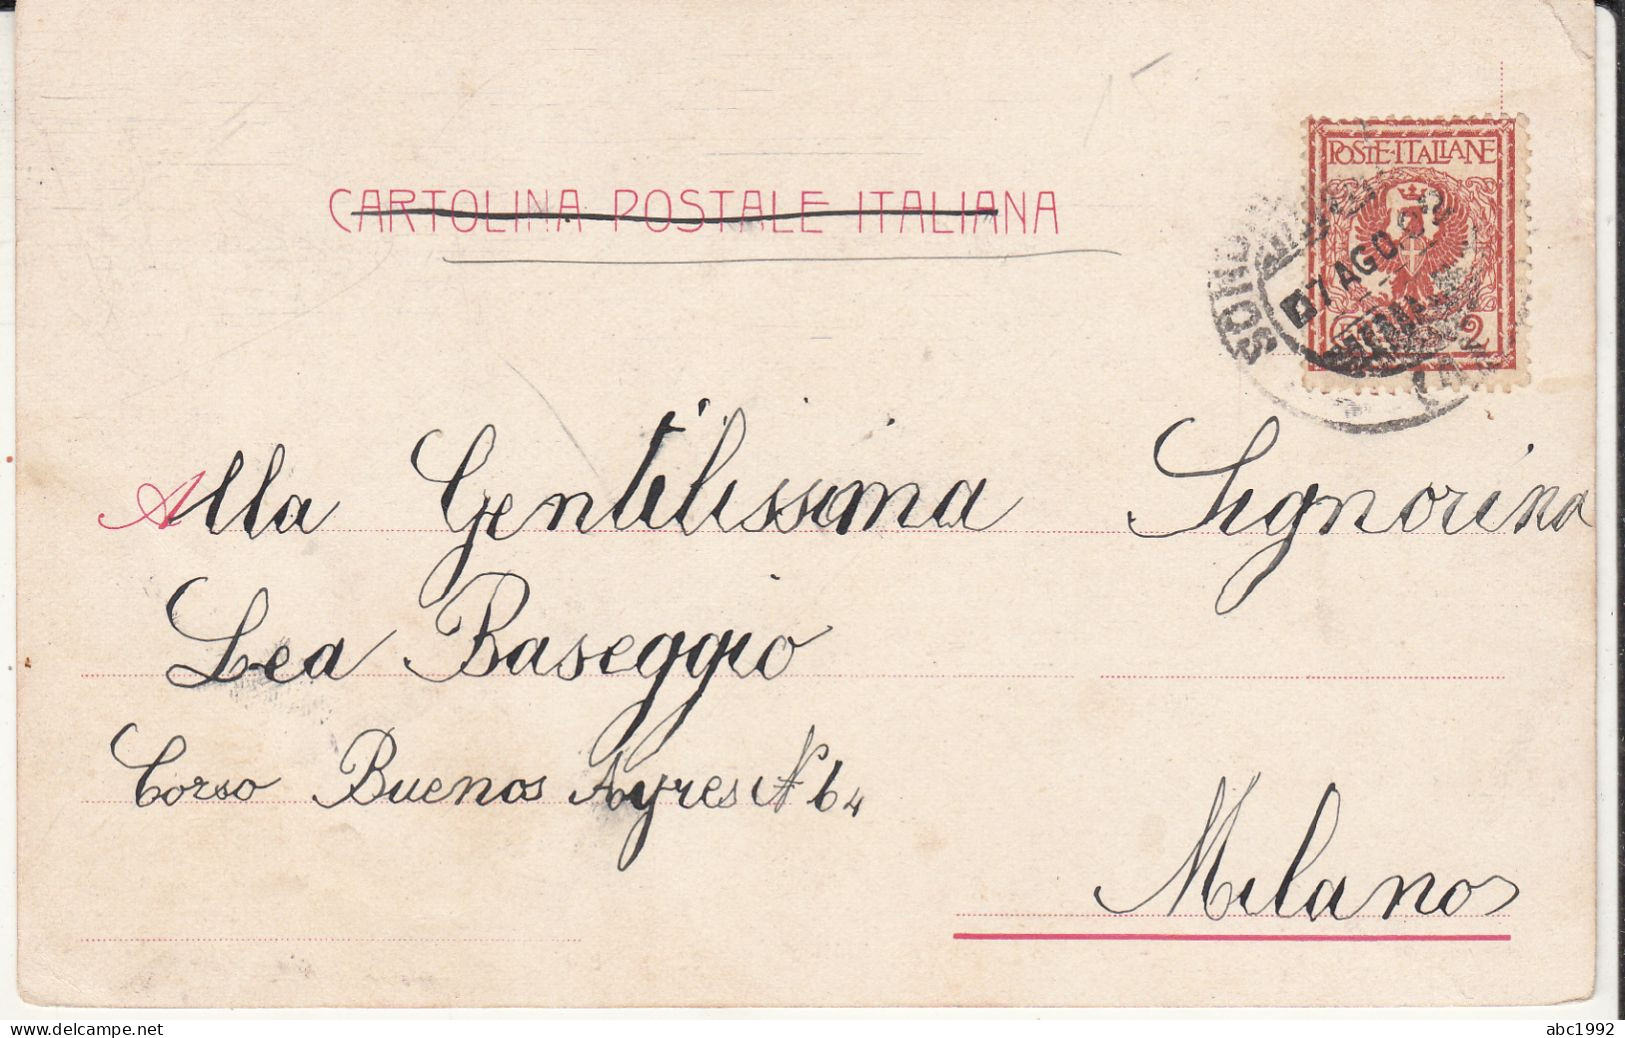 CARTOLINA POSTALE ITALIANA
POSTE·ITALIANE
7 AGO
2
Alla Gentilissima Signorina
Lea Baseggio
Corso Buenos Ayres N 64
Milano
abc1992